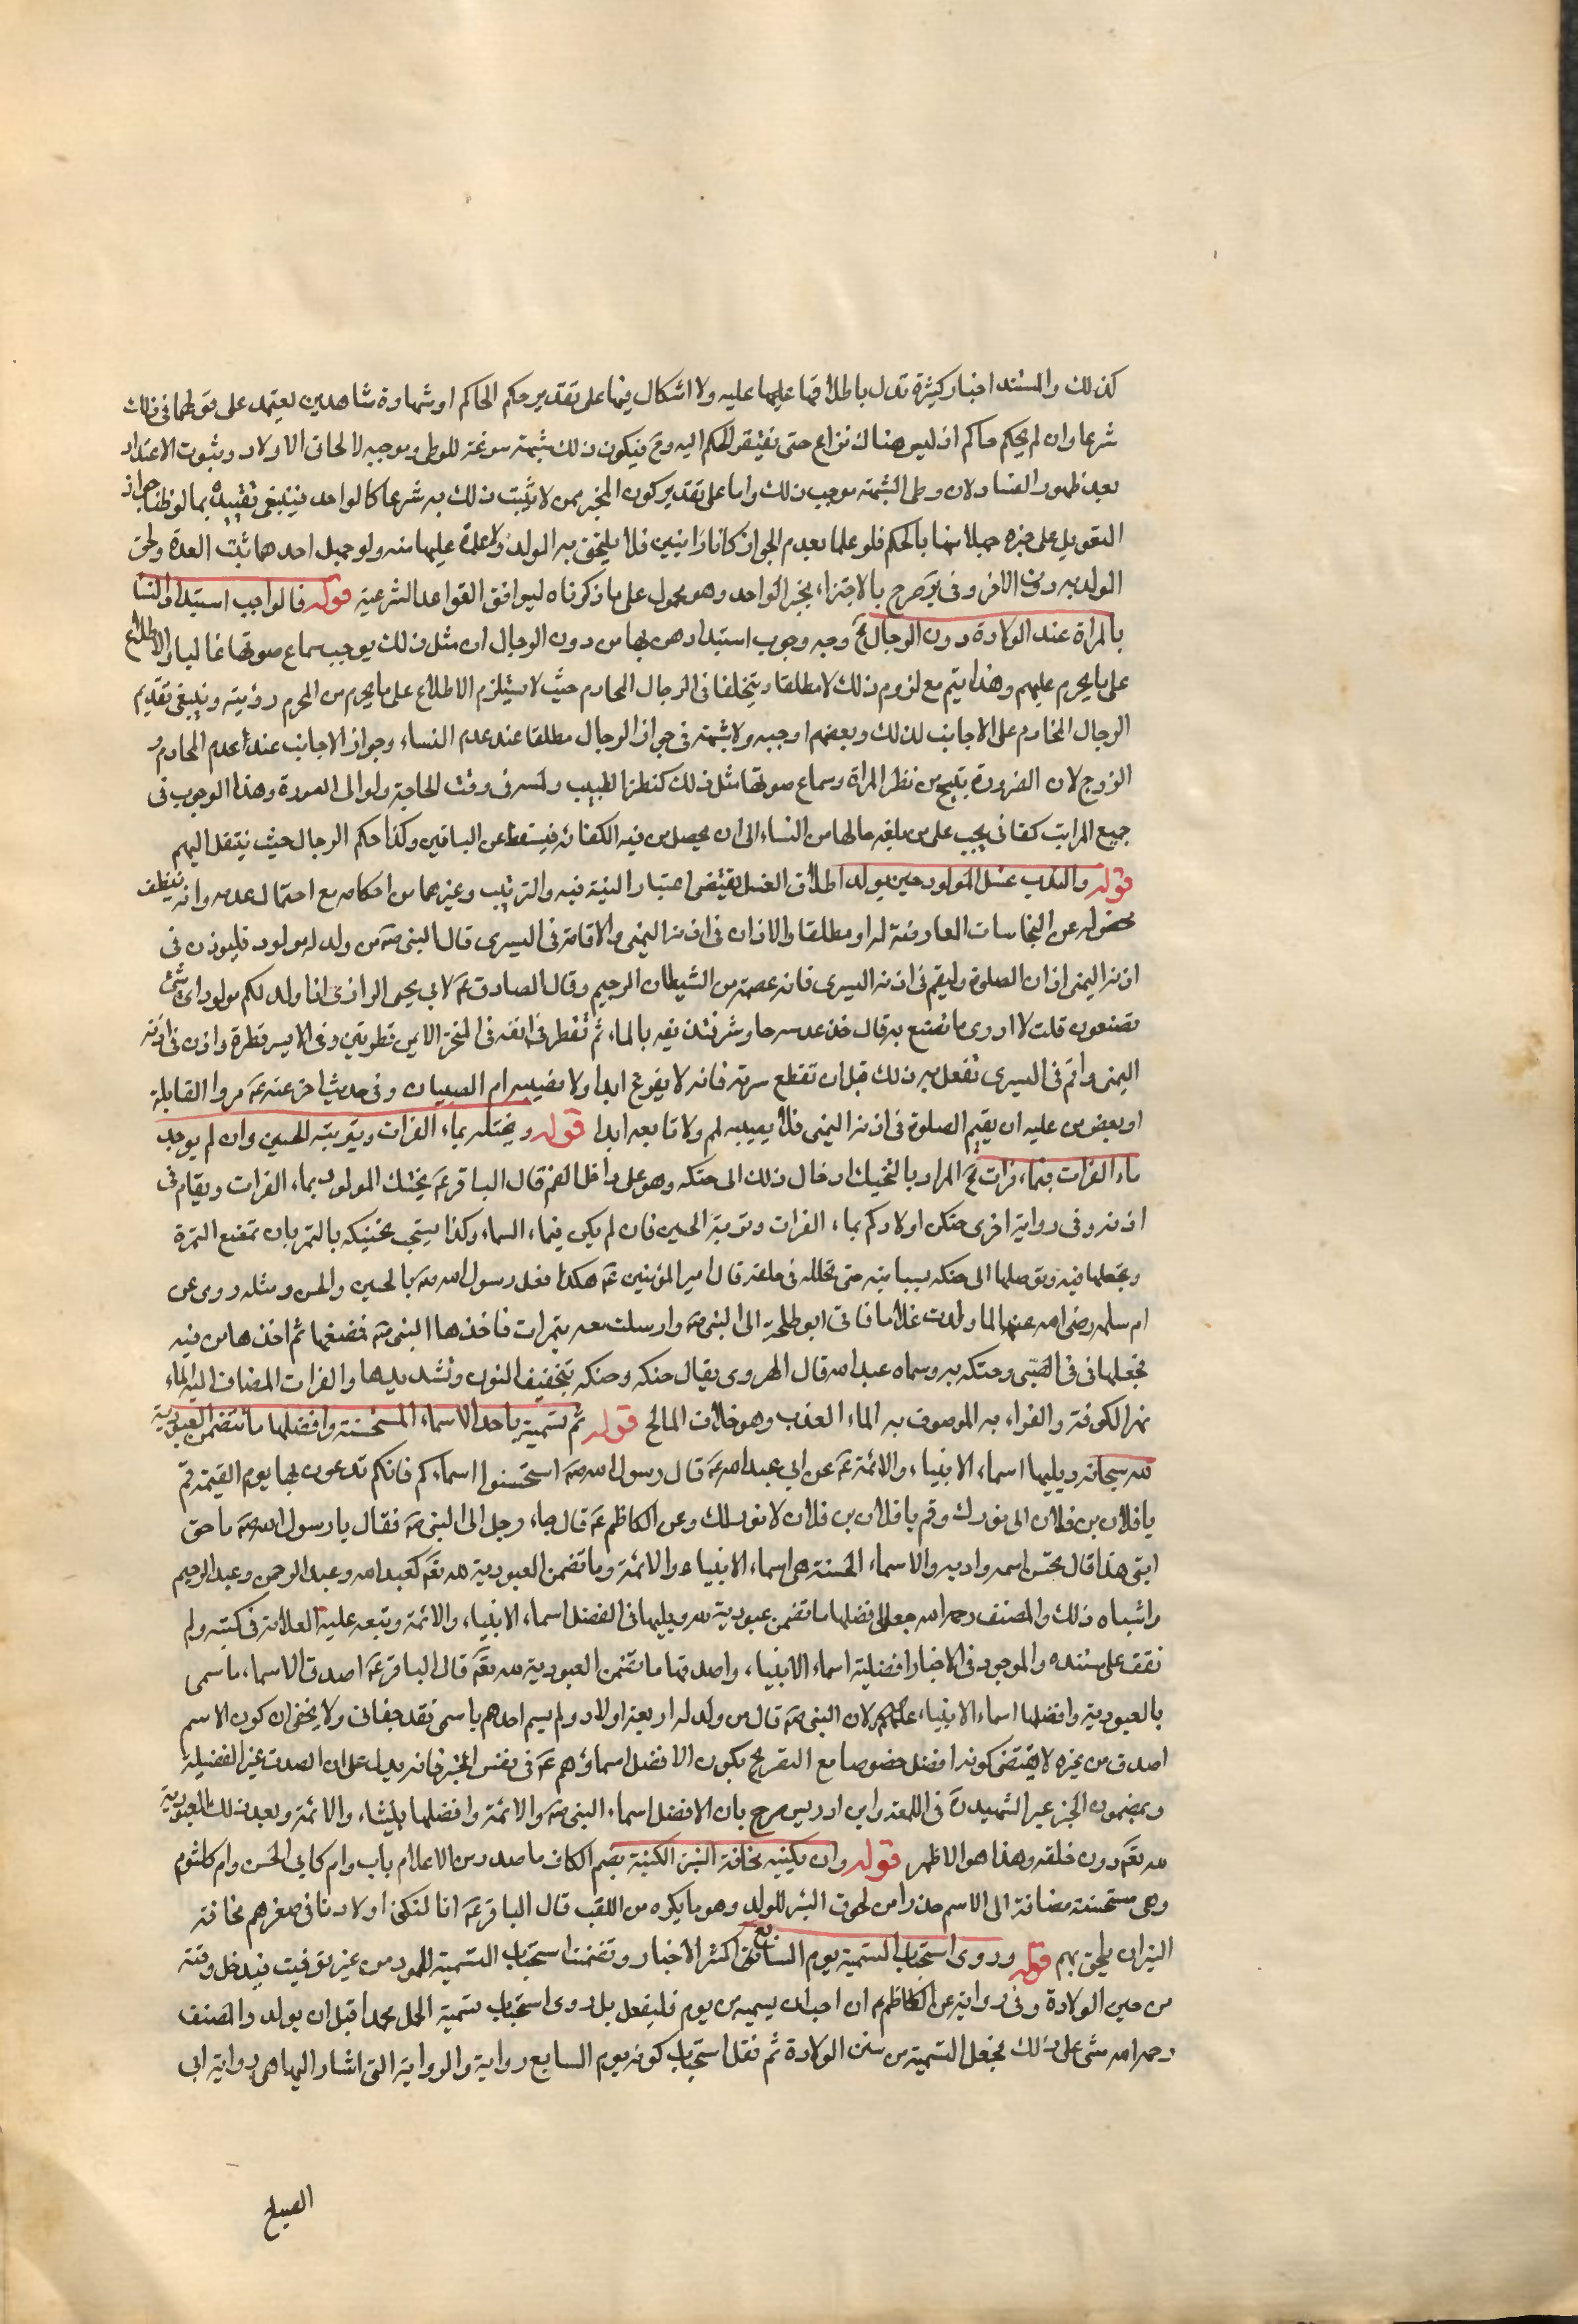 كذلك والمستند اخبار كثيرة تدل باطلاقها عليها عليه ولا اشكال فيها على تقدير حكم الحاكم او شهادة شاهدين يعتمد على قولهما في ذلك
شرعا وان لم يحكم حاكم اذ ليس هناك نزاع حتى يفتقر الحكم اليه وح فيكون ذلك شبهة مسوغة للوطى وموجبه لالحاق الاولاد وثبوت الاعتداد
بعد ظهور الفساد لان وطى الشبهة موجب ذلك واما على تقدير كون المخبر ممن لا يثبت ذلك به شرعا كالواحد فينبغي تقييده بما لو ظنا جواز
التعويل على خبره جهلا منهما بالحكم فلو علما بعدم الجواز كانا زانيين فلا يلحق به الولد ولا عدة عليها منه ولو جهل احدهما ثبت العدة ولحق
الولد به دون الاخر وفي يو صرح بالاجتزاء بخبر الواحد وهو محمول على ما ذكرناه ليوافق القواعد الشرعية قوله فالواجب استبداد النسا
بالمراة عند الولادة دون الرجال الخ وجه وجوب استبدادهن بها من دون الرجال ان مثل ذلك يوجب سماع صوتها غالبا والاطلاع
على ما يحرم عليهم وهذا يتم مع لزوم ذلك لا مطلقا ويتخلف في الرجال المحارم حيث لا يستلزم الاطلاع على ما يحرم من المحرم رؤيته وينبغي تقديم
الرجال المحارم على الاجانب لذلك وبعضهم اوجبه ولا شبهة في جواز الرجال مطلقا عند عدم النساء وجواز الاجانب عند عدم المحارم و
الزوج لان الضرورة تبيح من نظر المراة وسماع صوتها مثل ذلك كنظر الطبيب ولمسه في وقت الحاجة ولو الى العورة وهذا الوجوب في
جميع المراتب كفائي يجب على من بلغه حالها من النساء الى ان يحصل من فيه الكفائة فيسقط عن الباقين وكذا حكم الرجال حيث ينتقل اليهم
قوله والندب غسل المولود حين يولد اطلاق الغسل يقتضى اعتبار النية فيه والترتيب وغيرهما من احكامه مع احتمال عدمه وانه تنظيف
محض له عن النجاسات العارضة له او مطلقا والاذان في اذنه اليمنى والاقامة في اليسرى قال النبي ص من ولد له مولود فليوذن في
اذنه اليمنى اذان الصلوة وليقم في اذنه اليسرى فانه عصمة من الشيطان الرجيم وقال الصادق ع لابي يحيى الرازي اذا ولد لكم مولود اى شئ
تصنعون قلت لا ادرى ما نصنع به قال خذ عدسه جاوشير فدفه بالماء ثم تقطر في انفه في المنخر الايمن قطرتين وفي الايسر قطرة واذن في اذنه
اليمنى واقم في اليسرى تفعل به ذلك قبل ان تقطع سرته فانه لا يفزع ابدا ولا تصيبه ام الصبيان وفي حديث اخر عنه ع مروا القابلة
او بعض من عليه ان يقيم الصلوة في اذنه اليمنى فلا يصيبه لمم ولا تابعه ابدا قوله وبحنكه بماء الفرات وبتربة الحسين وان لم يوجد
ماء الفرات فبماء فرات الخ المراد بالتحنيك ادخال ذلك الى حنكه وهو على داخل الفم قال الباقر ع يحنك المولود بماء الفرات ويقام في
اذنه وفي رواية اخرى حنكوا اولادكم بماء الفرات وتربة الحسين فان لم يكن فبماء السماء وكذا يستحب تحنيكه بالتمر بان تمضغ التمرة
وتجعلها فيه وتوصلها الى حنكه بسبابته حتى تحلله في حلقه قال امير المؤمنين ع هكذا فعل رسول الله ص بالحسين والحسن ومثله روى عن
ام سلمه رضي الله عنها لما ولدت غلاما فاتى ابو طلحة الى النبي ص وارسلت معه بتمرات فاخذها النبي ص فمضغها ثم اخذها من فيه
فجعلها في في الصبي وحنكه به وسماه عبد الله قال الهروى يقال حنكه وحنكه بتخفيف النون وتشديدها والفرات المضاف اليه الماء
نهر الكوفة والفراء به الموصوف به الماء العذب وهو خلاف المالح قوله ثم تسمية باحد الاسماء المستحسنة وافضلها ما تتضمن العبودية
لله سبحانه ويليها اسماء الانبياء والائمة ع عن ابي عبد الله ع قال رسول الله ص استحسنوا اسماءكم فانكم تدعون بها يوم القيمة قم
يا فلان بن فلان الى نورك وقم يا فلان بن فلان لا نور لك وعن الكاظم ع قال جاء رجل الى النبي ص فقال يا رسول الله ص ما حق
ابنى هذا قال تحسن اسمه وادبه والاسماء الحسنة هى اسماء الانبياء والائمة وما تضمن العبودية لله تع كعبد الله وعبد الرحمن وعبد الرحيم
واشباه ذلك والمصنف رحمه الله جعل افضلها ما تضمن عبودية لله ويليها في الفضل اسماء الانبياء والائمة وتبعه عليه العلامة في كتبه ولم
نقف على مستنده والموجود في الاخبار افضلية اسماء الانبياء واصدقها ما تضمن العبودية لله تع قال الباقر ع اصدق الاسماء ما سمى
بالعبودية وافضلها اسماء الانبياء عليهم لان النبي ص قال من ولد له اربعة اولاد ولم يسم احدهم باسمى فقد جفانى ولا يخفى ان كون الاسم
اصدق من غيره لا يقتضى كونه افضل خصوصا مع التصريح بكون الافضل اسماؤهم ع في نفس الخبر فانه يدل على ان الصدق غير الفضيلة
وبمضمون الخبر عبر الشهيد ره في اللمعه وابن ادريس صرح بان الافضل اسماء النبي ص والائمة وافضلها والائمة وبعد ذلك العبودية
لله تع دون خلقه وهذا هو الاظهر قوله وان يكنيه مخافة النبز الكنية بضم الكاف ما صدر من الاعلام باب وام كابي الحسن وام كلثوم
وهى مستحسنة مضافة الى الاسم حذرا من لحوق النبز للولد وهو ما يكره من اللقب قال الباقر ع انا لنكنى اولادنا في صغرهم مخافة
النبز ان يلحق بهم قوله وروى استحباب التسمية يوم السابع اكثر الاخبار وتضمنت استحباب التسمية للمولود من غير توقيت فيدخل وقته
من حين الولادة وفي رواية عن الكاظم ع ان احب ان يسميه من يومه فليفعل بل روى استحباب تسمية الحمل محمدا قبل ان يولد والمصنف
رحمه الله مشى على ذلك فجعل التسمية من سنن الولادة ثم نقل استحباب كونه يوم السابع رواية والرواية التى اشار اليها هى رواية ابى
الصباح